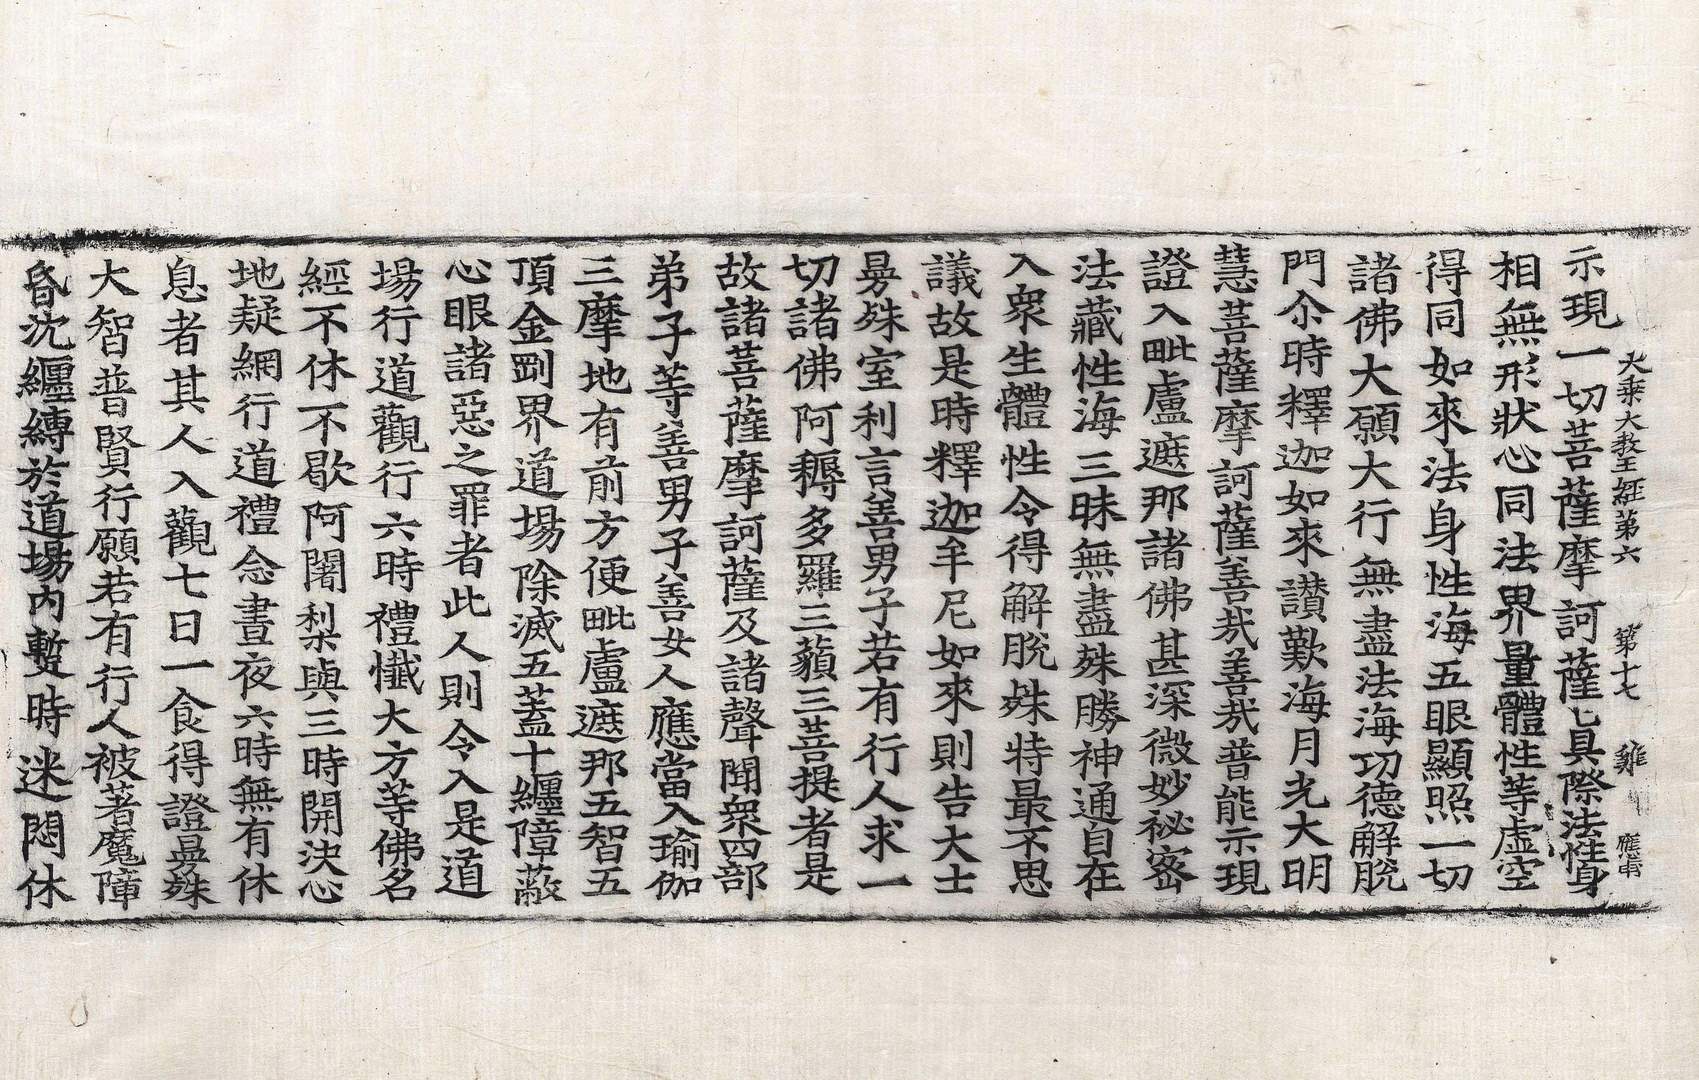 大乘大教王經第六　第十七　雞　應甫
示現一切菩薩摩訶薩七具際法性身
相無形狀心同法界量體性等虛空
得同如來法身性海五眼顯照一切
諸佛大願大行無盡法海功德解脫
門尒時釋迦如來讚歎海月光大明
慧菩薩摩訶薩善㢤善㢤普能示現
證入毗盧遮那諸佛甚深微妙祕密
法藏性海三昧無盡殊勝神通自在
入衆生體性令得解脫殊特最不思
議故是時釋迦牟尼如來則告大士
曼殊室利言善男子若有行人求一
切諸佛阿耨多羅三藐三菩提者是
故諸菩薩摩訶薩及諸聲聞衆四部
弟子等善男子善女人應當入瑜伽
三摩地有前方便毗盧遮那五智五
頂金剛界道場除滅五蓋十纏障蔽
心眼諸惡之罪者此人則令入是道
場行道觀行六時禮懺大方等佛名
經不休不歇阿闍梨與三時開決心
地疑網行道禮念晝夜六時無有休
息者其人入觀七日一食得證曼殊
大智普賢行願若有行人被著魔障
昏沈纏縛於道場內暫時迷悶休